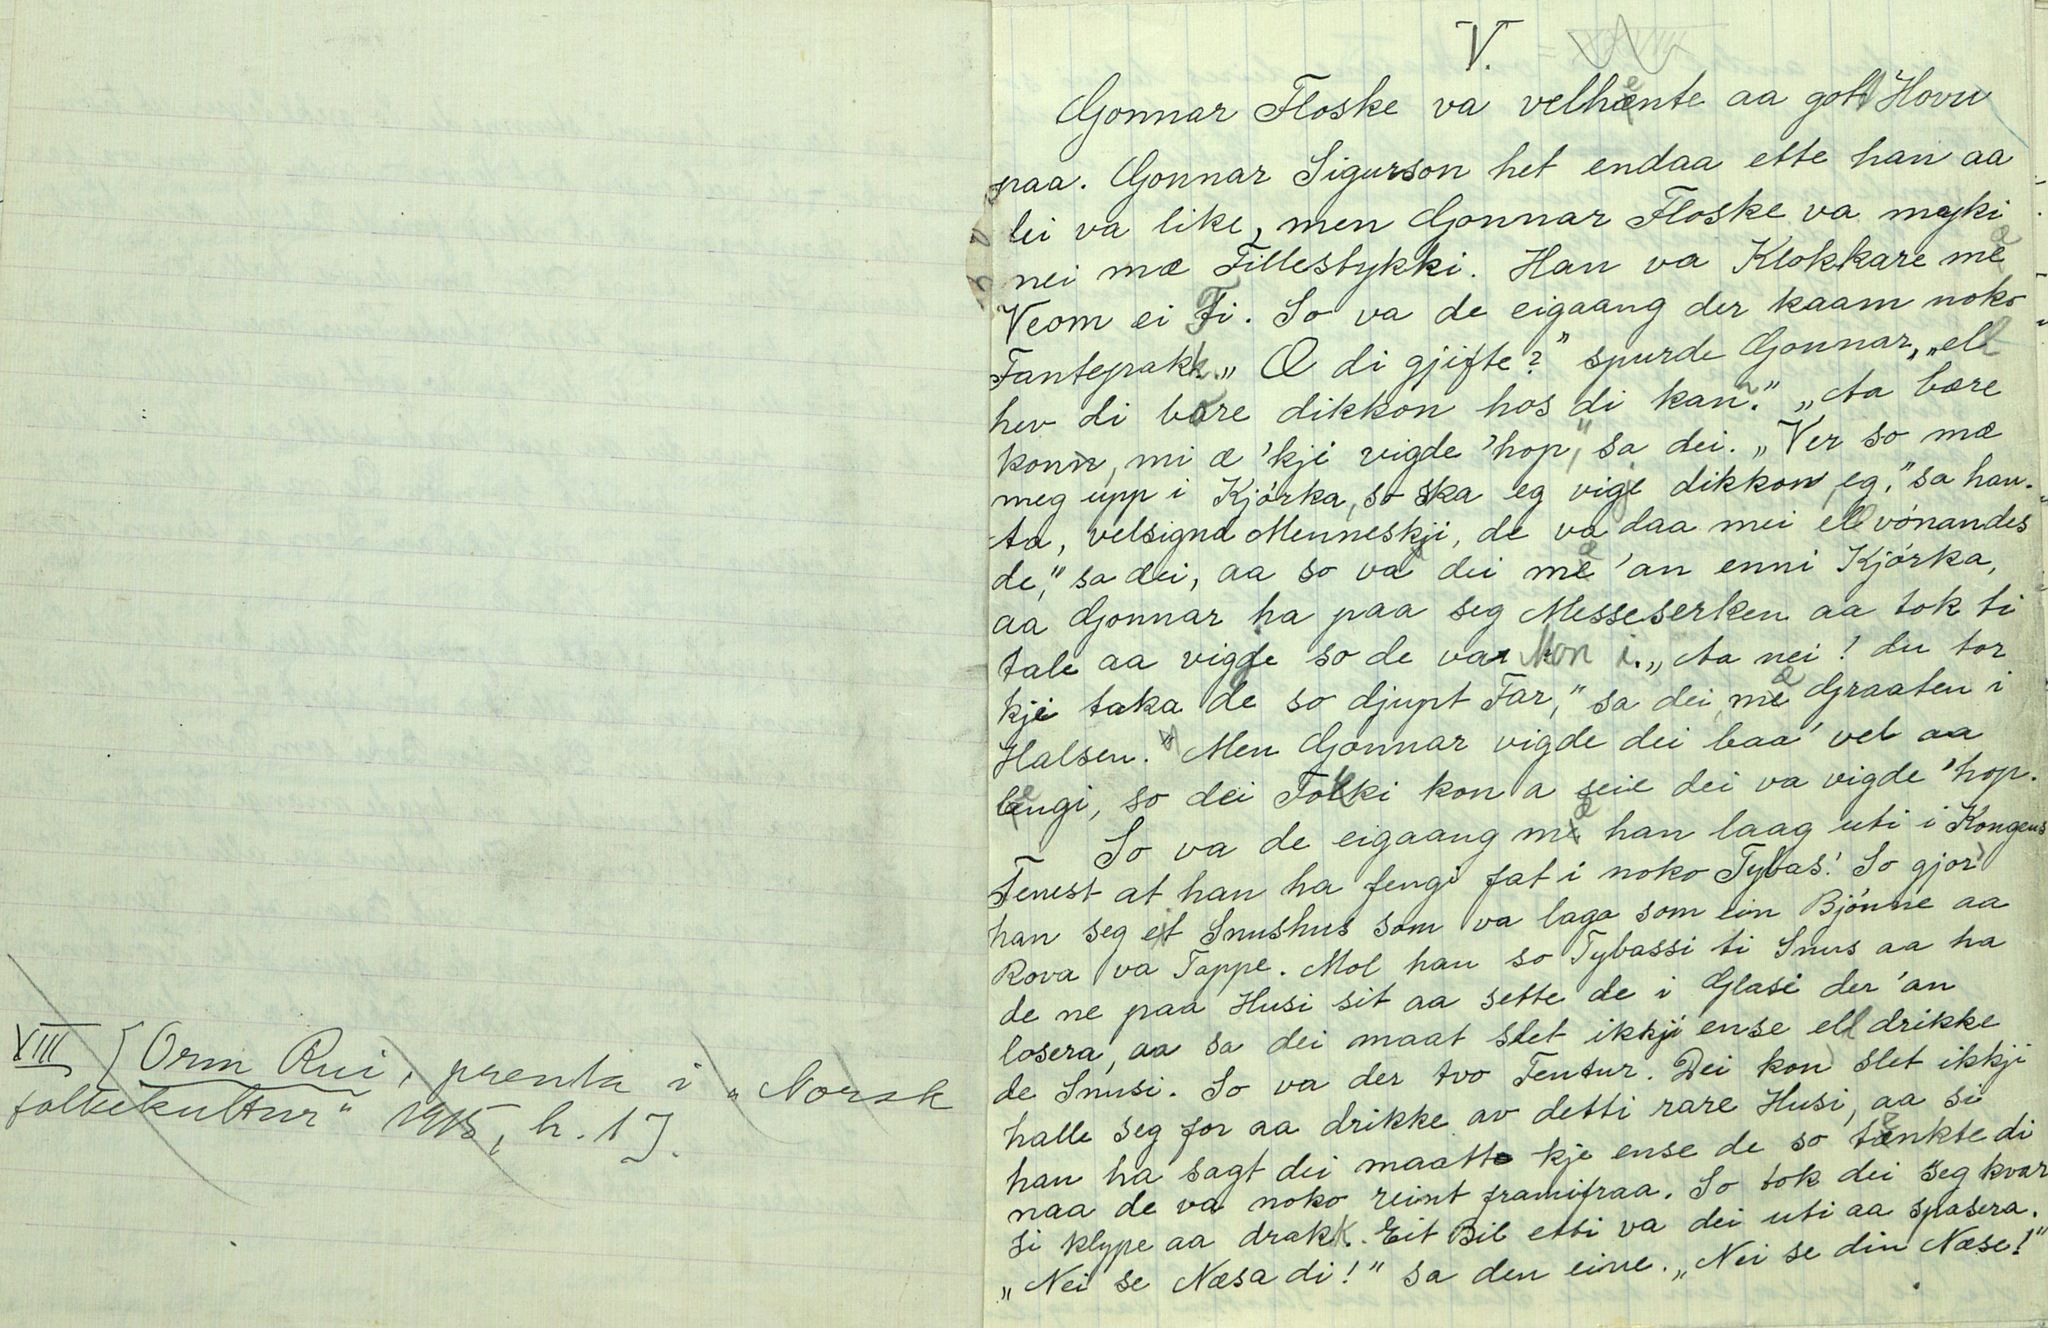 VIII [Orm Rui, prenta i „Norsk
folkekultur" 1915, h. 1].
V.
Gonnar Floske va velhente aa gott Hovu
paa. Gonnar Sigurson het endaa ette han aa
lei va like, men Gonnar Floske va myki
nei mæ Fillestykki. Han va Klokkare mæ
Veom ei Ti. So va de eigaang der kaam noko
Fantepakk. „Æ di gjifte?" spurde Gonnar, „ell
hev di bare dikkon hos di kan." „Aa bære
konn, mi æ 'kji vigde 'hop," sa dei. „Ver so mæ
meg upp i Kjórka, so ska eg vigje dikkon, eg," sa han.
„Aa, velsigna Menneskji, de va daa mei ell vónandes
de," sa dei, aa so va dei mæ 'an enni Kjórka,
aa Gonnar ha paa seg Messeserken aa tok ti
tale aa vigje so de va Mon i. „Aa nei! du tor
kji taka de so djupt Far," sa dei, mæ Graaten i
Halsen. Men Gonnar vigde dei baa' vel aa
lengi, so dei Tolki kon a seie dei va vigde 'hop.
So va de eigaang mæ han laag uti i Kongens
Tenest at han ha fengi fat i noko Tybas! So gjor'
han seg eit Snushus som va laga som ein Bjónne aa
Rova va Tappe. Mol han so Tybassi ti Snus aa ha
de ne paa Husi sit aa sette de i Glasi der 'an
losera, aa sa dei maat slet ikkji ense ell drikke
de Snusi. So va der tvo Tentur. Dei kon slet ikkji
halle seg for aa drikke av detti rare Husi, aa si
han ha sagt dei maatte kje ense de so tenkte di
naa de va noko reint framifraa. So tok dei seg kvar
si klype aa drakk. Eit Bil etti va dei uti aa spasera.
„Nei se Næsa di!" sa den eine. „Nei se din Næse!"